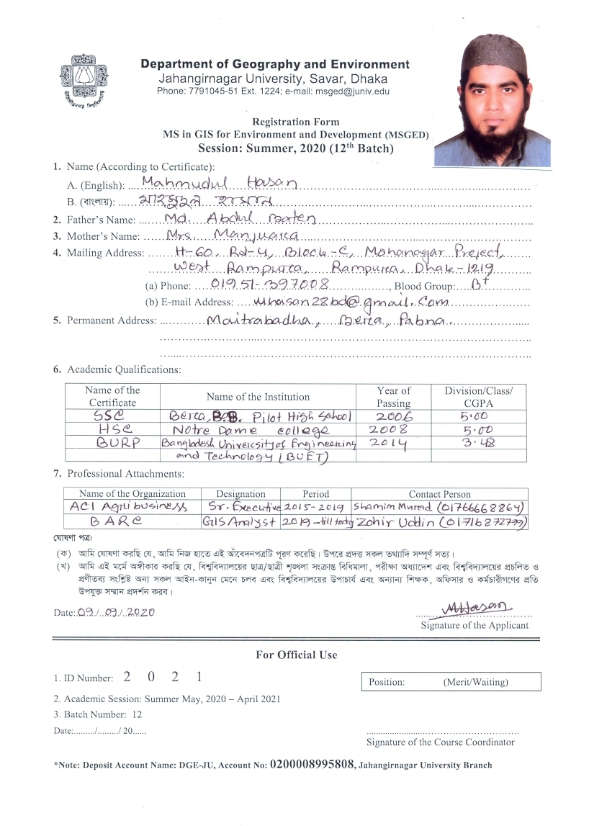 Department of Geography and Environment
Jahangirnagar University, Savar, Dhaka
Phone: 7791045-51 Ext. 1224; e-mail: msged@juniv.edu
Registration Form
MS in GIS for Environment and Development (MSGED)
Session: Summer, 2020 (12th Batch)
1. Name (According to Certificate):
A. (English): Mahmudul Hasan
B. (বাংলায়): মাহমুদুল হাসান
2. Father's Name: Md. Abdul Baten
3. Mother's Name: Mrs. Manjuara
4. Mailing Address: H-60, Rd-4, Block-C, Mohanagar Project,
West Rampura, Rampura, Dhak-1219
(a) Phone: 01951-397008, Blood Group: B+
(b) E-mail Address: mhasan28bd@gmail.com
5. Permanent Address: Maitrabadha, Bera, Pabna
6. Academic Qualifications:
Name of the Certificate Name of the Institution Year of Passing Division/Class/ CGPA
SSC Bera B.B. Pilot High School 2006 5.00
HSC Notre Dame college 2008 5.00
BURP Bangladesh University of Engineering 2014 3.48
and Technology (BUET)
7. Professional Attachments:
Name of the Organization Designation Period Contact Person
ACI Agribusiness Sr. Executive 2015-2019 Shamim Murad (01766668864)
BARC GIS Analyst 2019-till today Zohir Uddin (01716872799)
ঘোষণা পত্র:
(ক) আমি ঘোষণা করছি যে, আমি নিজ হাতে এই আবেদনপত্রটি পূরণ করেছি। উপরে প্রদত্ত সকল তথ্যাদি সম্পূর্ণ সত্য।
(খ) আমি এই মর্মে অঙ্গীকার করছি যে, বিশ্ববিদ্যালয়ের ছাত্র/ছাত্রী শৃঙ্খলা সংক্রান্ত বিধিমালা, পরীক্ষা অধ্যাদেশ এবং বিশ্ববিদ্যালয়ের প্রচলিত ও
প্রণীতব্য সংশ্লিষ্ট অন্য সকল আইন-কানুন মেনে চলব এবং বিশ্ববিদ্যালয়ের উপাচার্য এবং অন্যান্য শিক্ষক, অফিসার ও কর্মচারীগণের প্রতি
উপযুক্ত সম্মান প্রদর্শন করব।
Date: 09/09/2020
MHasan
Signature of the Applicant
For Official Use
1. ID Number: 2 0 2 1
Position: (Merit/Waiting)
2. Academic Session: Summer May, 2020 – April 2021
3. Batch Number: 12
Date:........./........./ 20......
Signature of the Course Coordinator
*Note: Deposit Account Name: DGE-JU, Account No: 0200008995808, Jahangirnagar University Branch